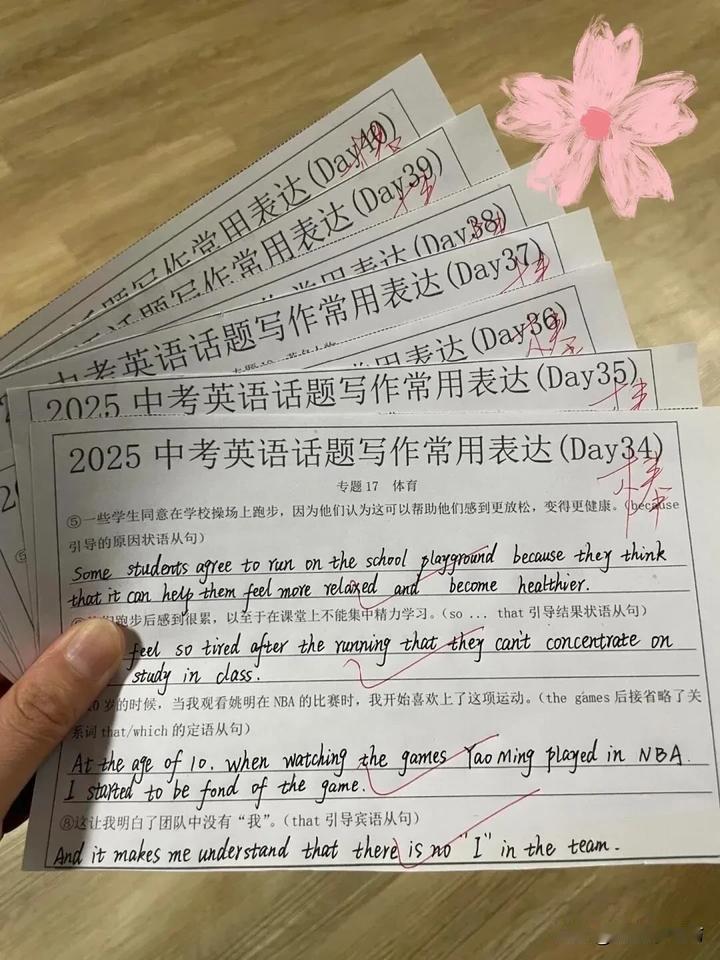 (Day40)
题写作常用表达(Day39)
话题写作常用表达(Day38)
中考英语话题写作常用表达(Day37)
常用表达(Day36)
2025 中考英语话题写作常用表达(Day35)
2025 中考英语话题写作常用表达(Day34)
专题 17 体育
⑤一些学生同意在学校操场上跑步，因为他们认为这可以帮助他们感到更放松，变得更健康。(because
引导的原因状语从句)
Some students agree to run on the school playground because they think
that it can help them feel more relaxed and become healthier.
跑步后感到很累，以至于在课堂上不能集中精力学习。(so ... that 引导结果状语从句)
feel so tired after the running that they can't concentrate on
study in class.
0 岁的时候，当我观看姚明在 NBA 的比赛时，我开始喜欢上了这项运动。(the games 后接省略了关
系词 that/which 的定语从句)
At the age of 10. when watching the games Yao Ming played in NBA.
I started to be fond of the game.
⑧这让我明白了团队中没有“我”。(that 引导宾语从句)
And it makes me understand that there is no "I" in the team.